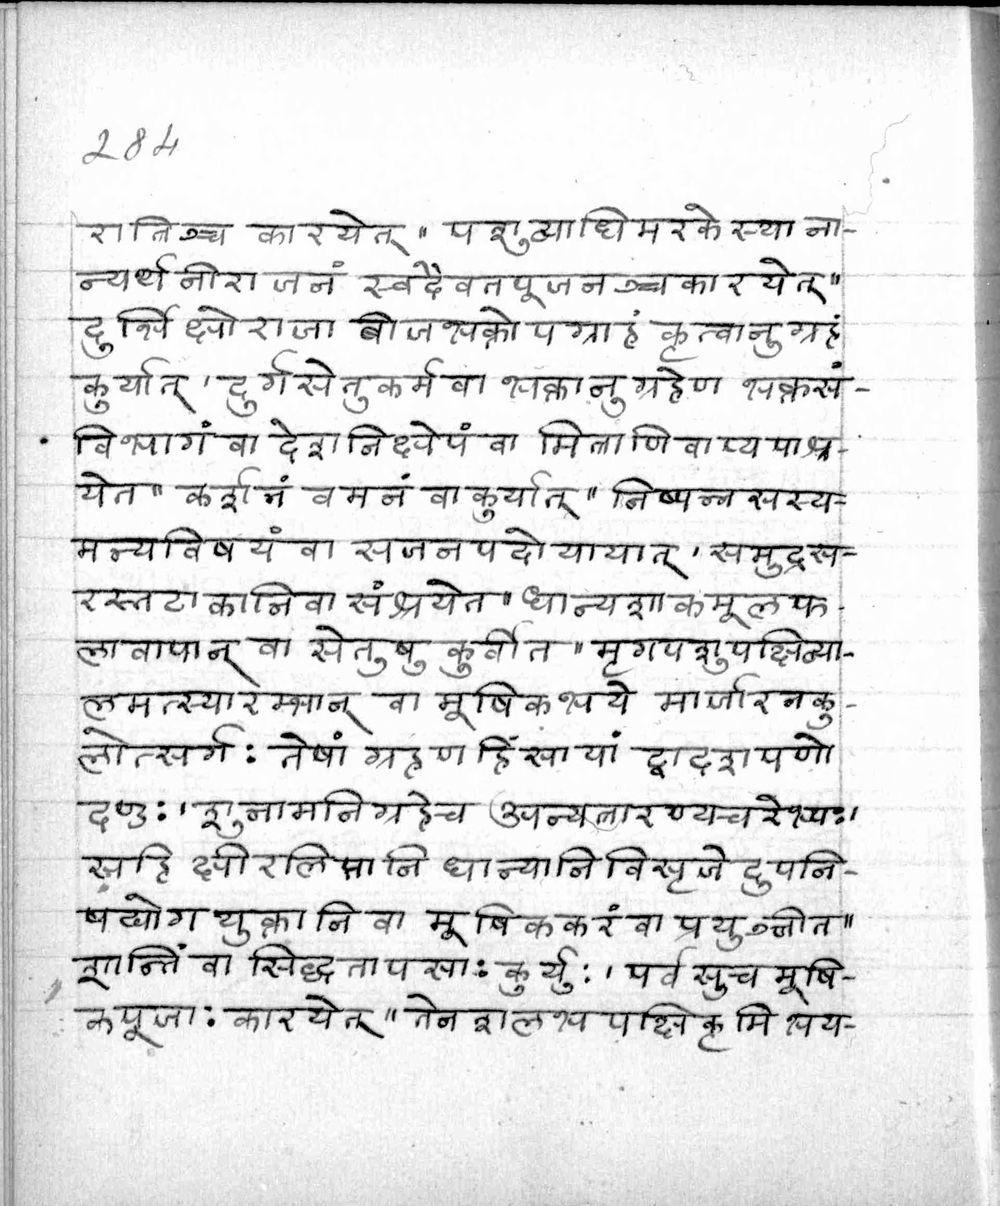 284
रातिञ्च कारयेत् ॥ पशुव्याधिमरके स्थाना-
न्यर्थनीराजनं स्वदैवतपूजनञ्च कारयेत् ॥
दुर्भिक्षे राजा बीजभक्तोपग्राहं कृत्वानुग्रहं
कुर्यात् । दुर्गसेतुकर्म वा भक्तानुग्रहेण भक्तसं-
विभागं वा देशनिक्षेपं वा मित्राणि वाप्यपाश्र-
येत ॥ कर्शनं वमनं वा कुर्यात् ॥ निष्पन्नसस्य-
मन्यविषयं वा सजनपदो यायात् । समुद्रस-
रस्तटाकानि वा संश्रयेत ॥ धान्यशाकमूलफ-
लावापान् वा सेतुषु कुर्वीत ॥ मृगपशुपक्षिव्या-
लमत्स्यारम्भान् वा मूषिकभये मार्जारनकु-
लोत्सर्गः तेषां ग्रहणहिंसायां द्वादशपणो
दण्डः । शुनामनिग्रहे च अन्यत्रारण्यचरेभ्यः ।
स्नुहिक्षीरलिप्तानि धान्यानि विसृजेदुपनि-
षद्योगयुक्तानि वा मूषिककरं वा प्रयुञ्जीत ॥
शान्तिं वा सिद्धतापसाः कुर्युः । पर्वसु च मूषि-
कपूजाः कारयेत् ॥ तेन शलभपक्षिकृमिभय-